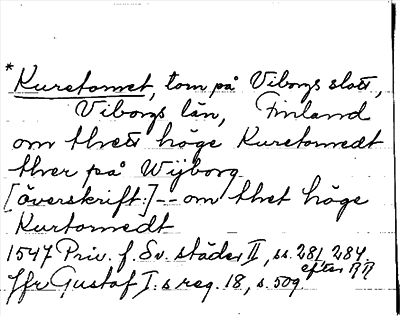 *Kuretornet, torn på Viborgs slott,
Viborgs län, Finland
om thett höge Kuretornedt
ther på Wijborg
[överskrift:]-- om thet höge
Kurtornedt
1547 Priv. f. Sv. städer II, ss. 281, 284.
Jfr Gustaf I:s reg. 18, s. 509 efter RR